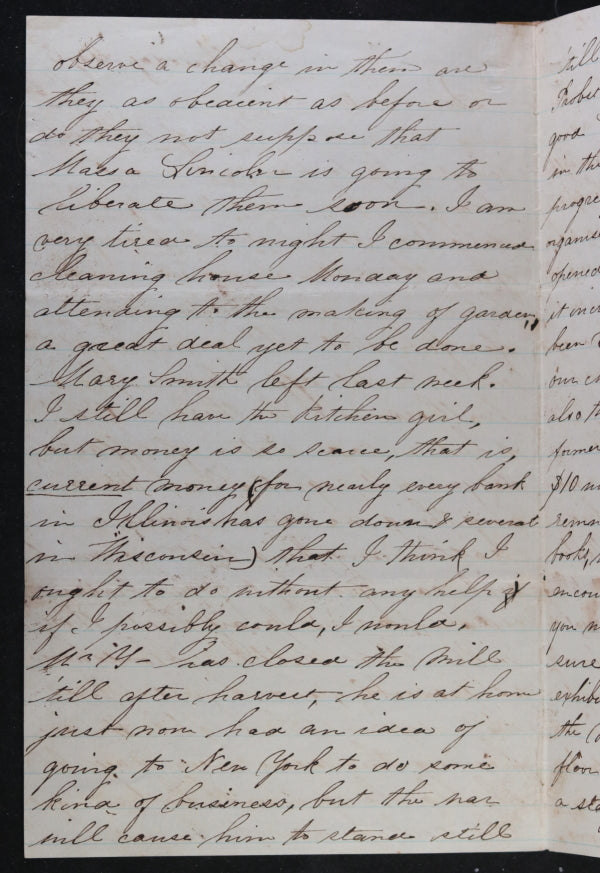 observe a change in them are
they as obedient as before or
do they not suppose that
Massa Lincoln is going to
liberate them soon. I am
very tired to night I commenced
cleaning house Monday and
attending to the making of garden,
a great deal yet to be done.
Mary Smith left last week.
I still have the kitchen girl,
but money is so scarce, that is,
current money (for nearly every bank
in Illinois has gone down & several
in Wisconsin) that I think I
ought to do without any help &
if I possibly could, I would.
Mr H- has closed the mill
'till after harvest, he is at home
just now had an idea of
going to New York to do some
kind of business, but the war
will cause him to stand still
'till
good
in the
opened
been
our
also th
former
$10
book,
encou
you
sure
exhibi
the
floor
a sta